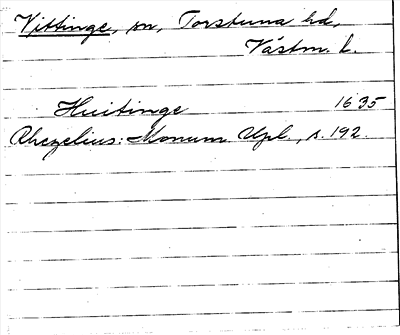 Vittinge, sn, Torstuna hd,
Västm. l.
Huitinge 1635
Rhezelius: Monum. Upl., s. 192.